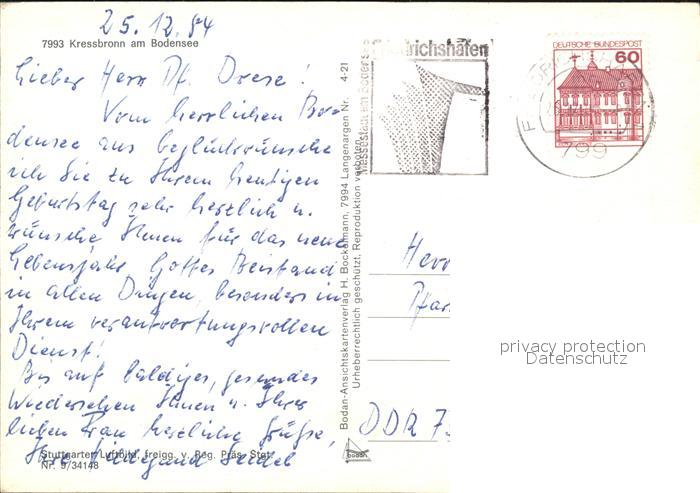 25.12.84
7993 Kressbronn am Bodensee
Lieber Herr Pf. Drese!
Vom herrlichen Bo-
densee aus beglückwünsche
ich Sie zu Ihrem heutigen
Geburtstag sehr herzlich u.
wünsche Ihnen für das neue
Lebensjahr Gottes Beistand
in allen Dingen, besonders in
Ihrem verantwortungsvollen
Dienst!
Bis auf baldiges, gesundes
Wiedersehen Ihnen u. Ihrer
lieben Frau herzliche Grüße,
Ihre Hildegard Seidel
Stuttgarter Luftbild, freigg. v. Reg. Präs. Stgt.
Nr. 9/34148
Bodan-Ansichtskartenverlag H. Bockelmann, 7994 Langenargen Nr. 4-21
Urheberrechtlich geschützt, Reproduktion verboten
Messestadt am Bodensee
Friedrichshafen
DEUTSCHE BUNDESPOST
60
799
Herr
Pfar
DDR 73
privacy protection
Datenschutz